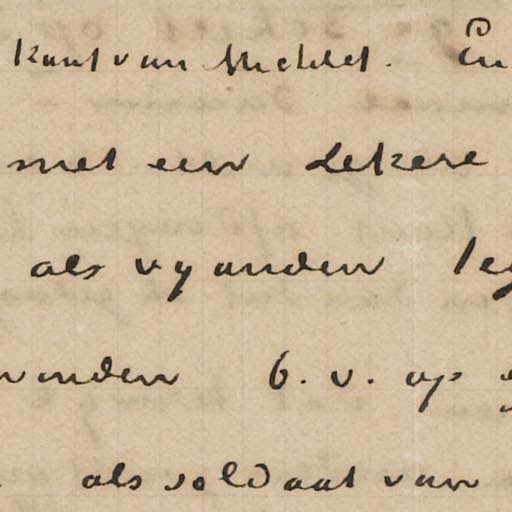 kant van Michelet. En
met een zekere
als vyanden teg
vonden b.v. op
als soldaat van